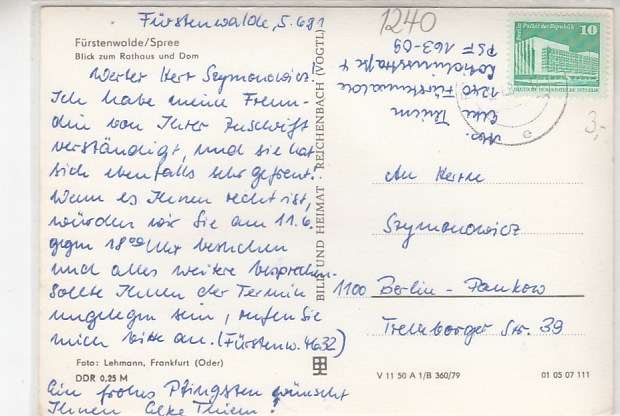 Fürstenwalde, 5.6.81
1240
Fürstenwalde/Spree
Blick zum Rathaus und Dom
Werter Herr Szymonowicz!
Ich habe meine Freun-
din von Ihrer Zuschrift
verständigt, und sie hat
sich ebenfalls sehr gefreut.
Wenn es Ihnen recht ist,
würden wir Sie am 11.6.
gegen 18⁰⁰ Uhr besuchen
und alles weitere besprechen.
Sollte Ihnen der Termin
ungelegen sein, rufen Sie
mich bitte an. (Fürstenw. 4632)
Foto: Lehmann, Frankfurt (Oder)
DDR 0,25 M
Ein frohes Pfingsten wünscht
Ihnen Elke Thiem!
BILD UND HEIMAT REICHENBACH (VOGTL)
Abs.
Elke Thiem
1240 Fürstenwalde
PSF 163-09
10
3,-
e
An Herrn
Szymonowicz
1100 Berlin - Pankow
Trelleborger Str. 39
V 11 50 A 1/B 360/79
01 05 07 111